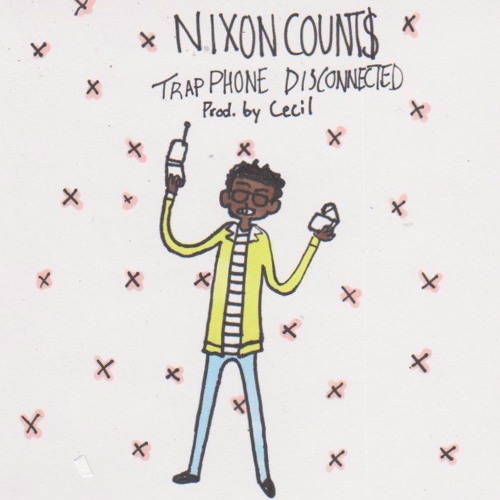 NIXON COUNT$
TRAP PHONE DISCONNECTED
Prod. by Cecil